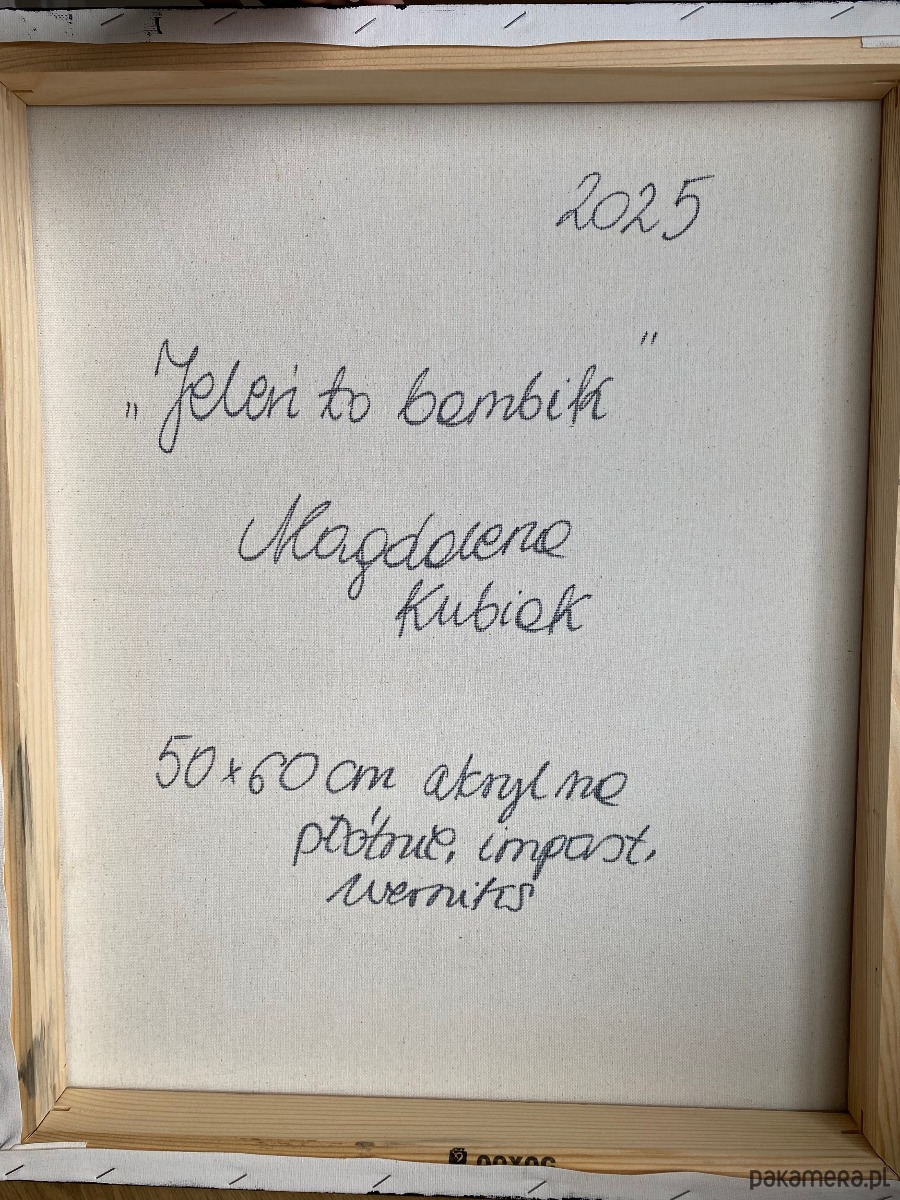 2025
„Jeleń to bambik"
Magdalena
Kubiak
50x60 cm akryl na
płótnie, impast,
werniks
pakamera.pl